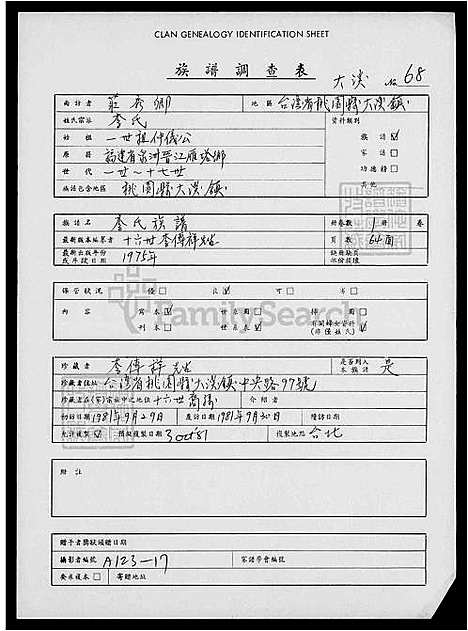 CLAN GENEALOGY IDENTIFICATION SHEET
族譜調查表
大溪 No 68
面訪者 莊 卿 地區 台灣省桃園縣大溪鎮
姓氏宗派 李氏 資料類別
始祖 一世祖仲儀公 族譜 ☑
原縣 福建省泉州晉江雁塔鄉 家譜 □
世代 一世~十七世 功德簿 □
族譜包含地區 桃園縣大溪鎮 其他
族譜名 李氏族譜 冊卷數 1 冊 卷
最新版本編著者 十六世李傳祥先生 頁數 64面
最新出版年份或年譜日期 1975年 缺冊缺頁
保管狀況 優 □ 良 ☑ 可 □ 劣 □
內容 寫本 □ 世系圖 □ 插圖 □
刊本 □ 世系表 有關婦女資料
FamilySearch
珍藏者 李傳祥先生 是否列入本族譜 是
珍藏者住址 台灣省桃園縣大溪鎮中央路97號
珍藏者在(家)宗族中之地位 十六世裔孫 介紹者
初訪日期 1981年9月29日 複訪日期 1981年9月30日 續訪日期
允許複製 ☑ 預擬複製日期 3 oct 81 複製地點 台北
附註
贈予者獎狀頒贈日期
攝影者編號 A123-17 家譜學會編號
要求複本 □ 寄贈地址